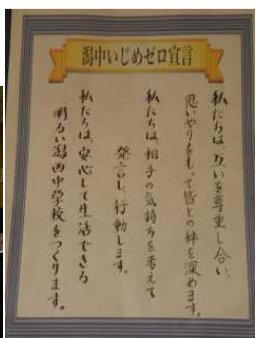 潟中いじめゼロ宣言
私たちは、互いを尊重し合い、
思いやりをもって皆との絆を深めます。
私たちは、相手の気持ちを考えて
発言し、行動します。
私たちは、安心して生活できる
明るい潟西中学校をつくります。